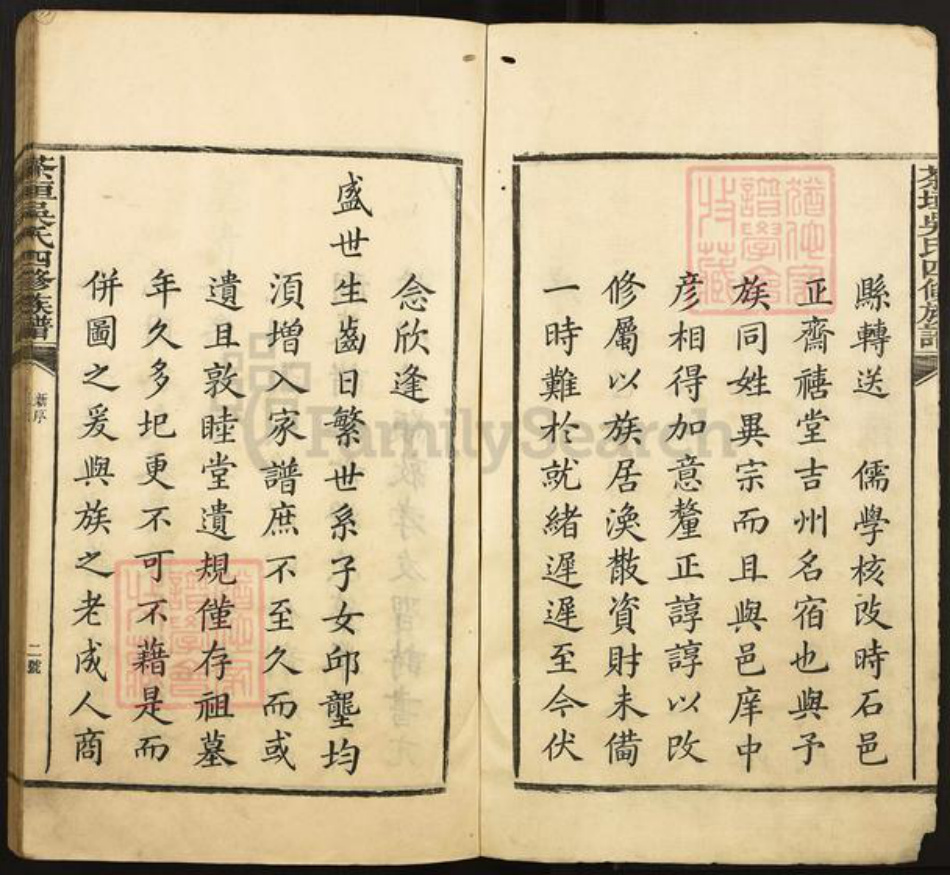 縣轉送 儒學核改時石邑
正齋禧堂吉州名宿也與予
族同姓異宗而且與邑庠中
彥相得加意釐正諄諄以改
修屬以族居渙散資財未備
一時難於就緒遲遲至今伏
念欣逢
盛世生齒日繁世系子女邱壟均
湏增入家譜庶不至久而或
遺且敦睦堂遺規僅存祖墓
年久多圯更不可不藉是而
併圖之爰與族之老成人商
茶垣吳氏四修族譜
新序
二號
茶垣吳氏四修族譜
譜學會
收藏
譜學會
收藏
FamilySearch